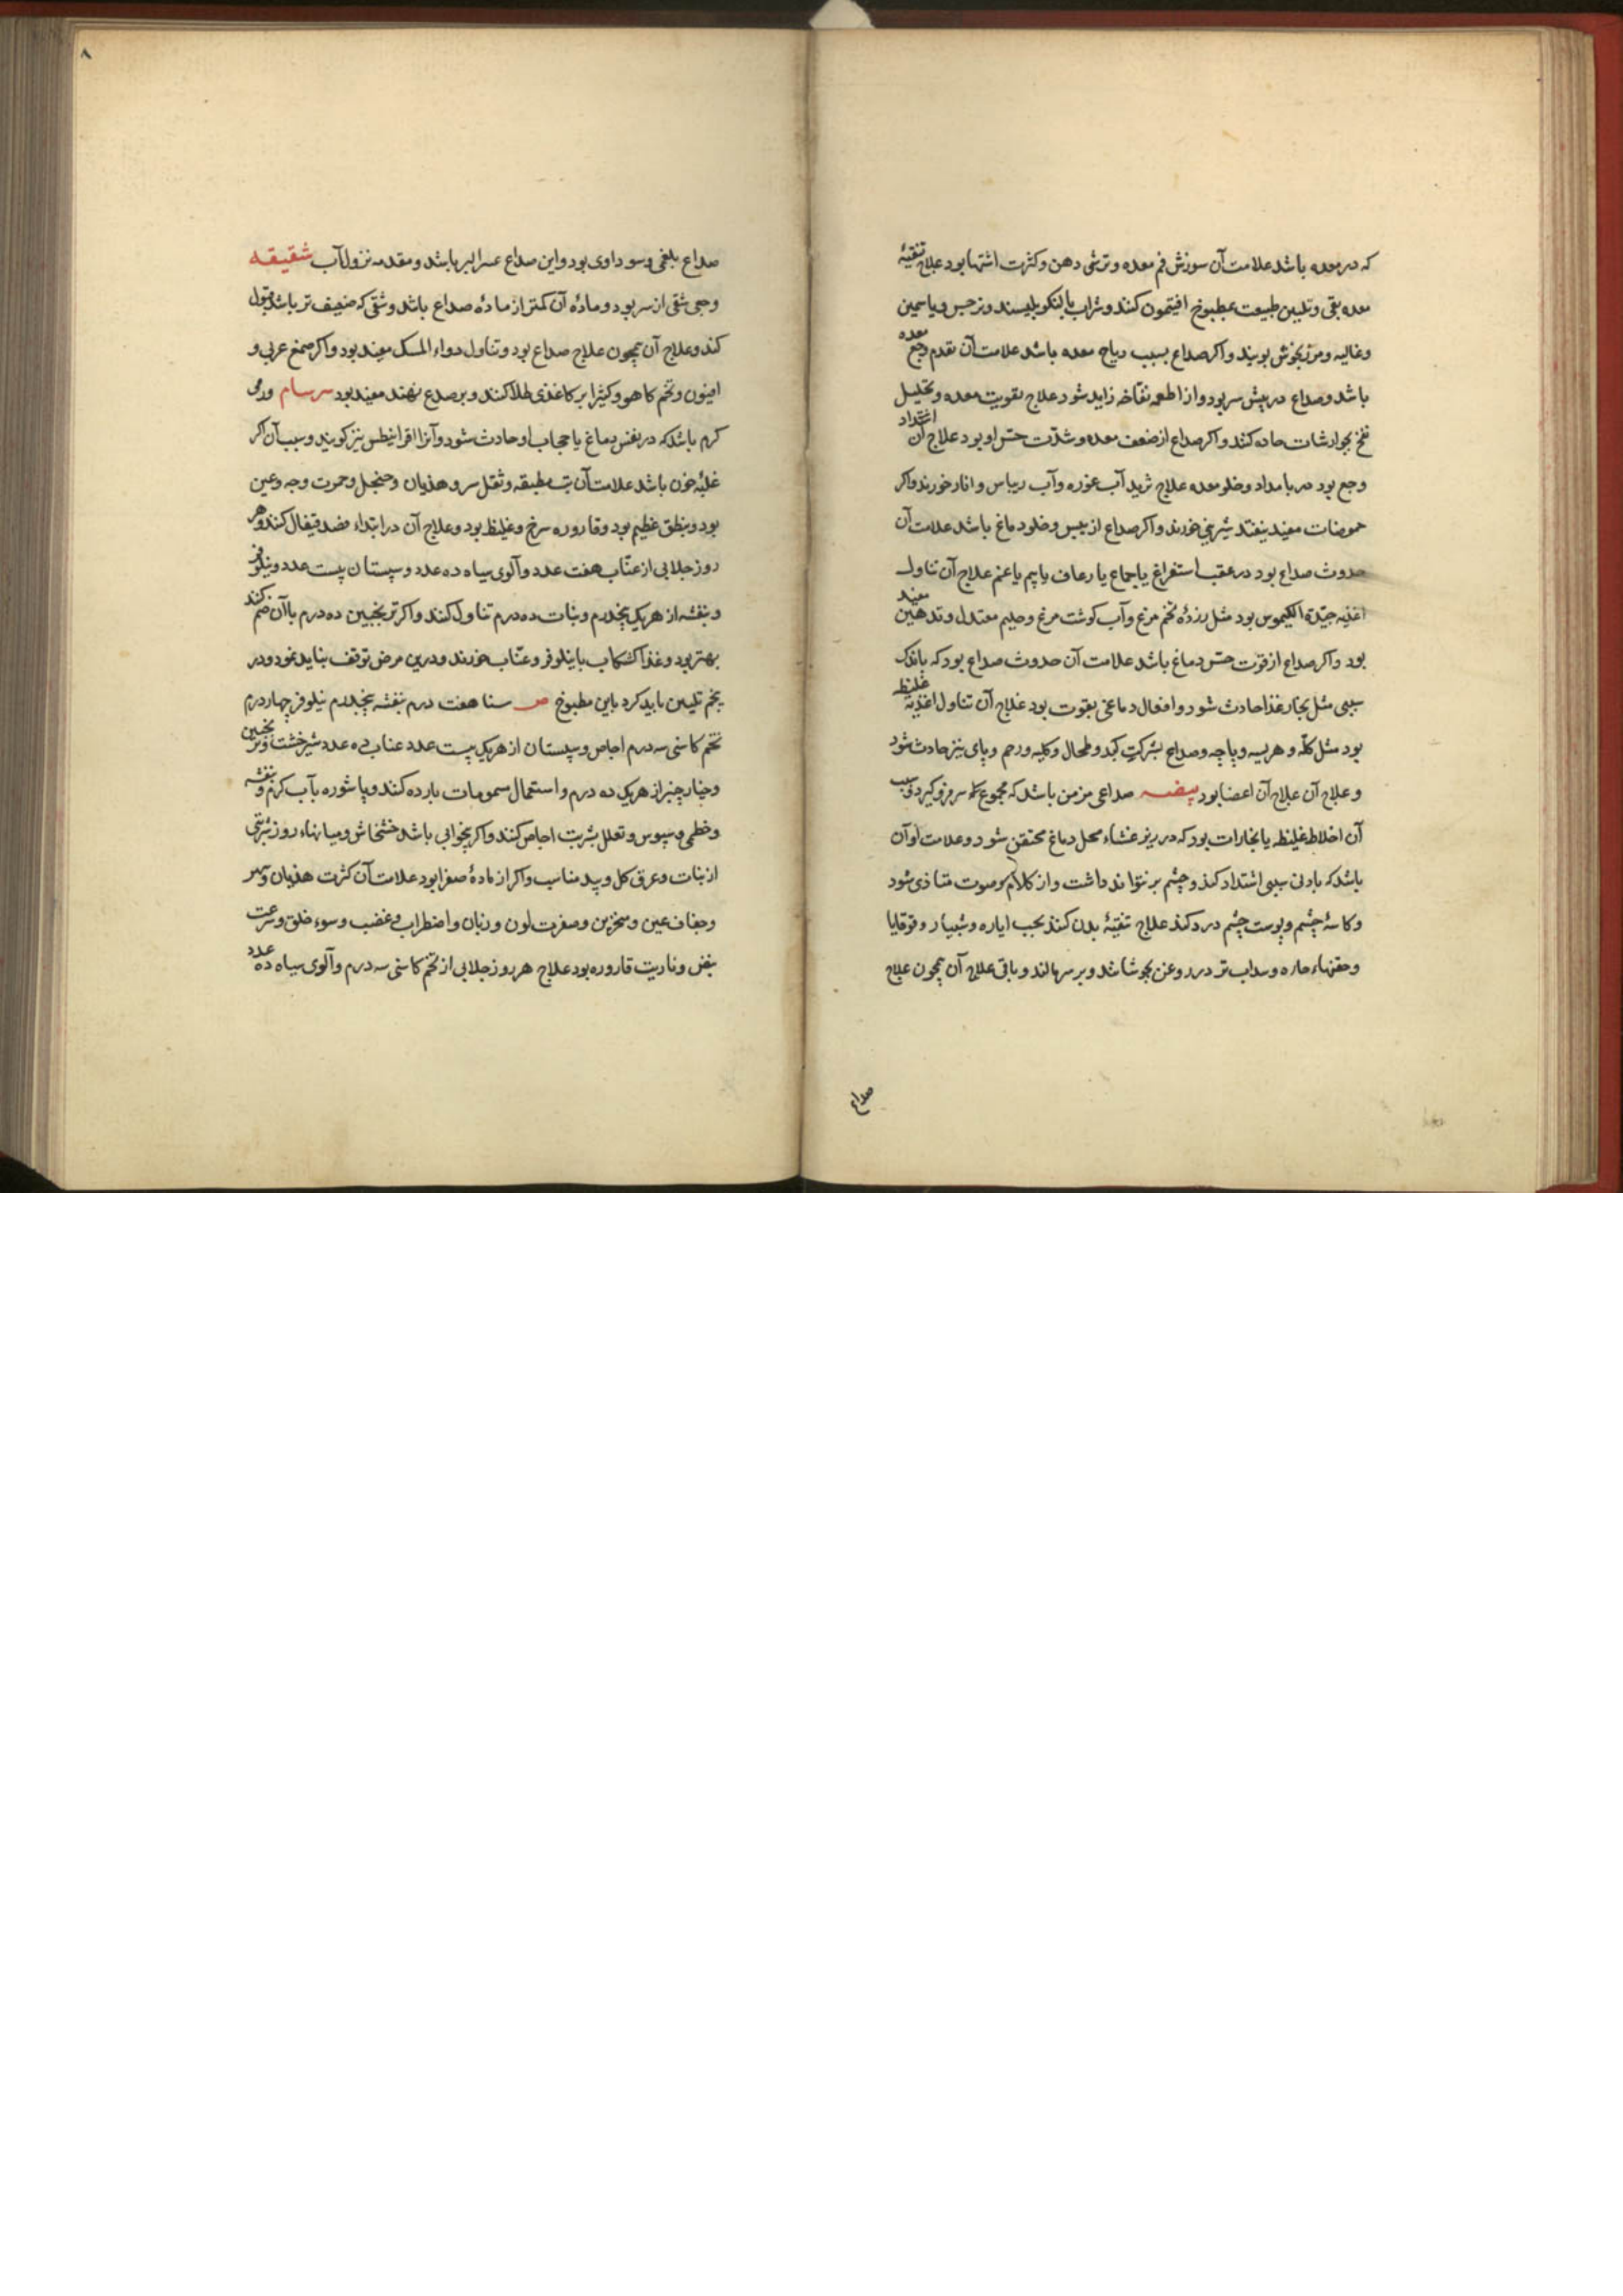 که در معده باشد علامت آن سوزش فم معده و ترشی دهن و کثرت اشتها بود علاج تنقیهٔ
معده بقی و تلیین طبیعت بمطبوخ افتیمون کنند و شراب بالنکو بلیسند و نرجس و یاسمین
و غالیه و مرزنجوش بویند و اکر صداع بسبب ریاح معده باشد علامت آن تقدم وجع معده
باشد و صداع در پیش سر بود و از اطعمه نفاخه زاید شود علاج تقویت معده و تحلیل
نفخ بجوارشات حاده کنند و اکر صداع از ضعف معده و شدّت حسّ او بود علاج آن اشتداد
وجع بود در بامداد و خلو معده علاج ثرید آب غوره و آب ریباس و انار خورند و اکر
حموضات مفید نیفتد شیرینی خورند و اکر صداع از یبس و خلو دماغ باشد علامت آن
حدوث صداع بود در عقب استفراغ یا جماع یا رعاف یا بیم یا غم علاج آن تناول
اغذیه جیّدة الکیموس بود مثل زردهٔ تخم مرغ و آب کوشت مرغ و حلیم معتدل و تدهین مفید
بود و اکر صداع از قوت حسّ دماغ باشد علامت آن حدوث صداع بود که باندک
سببی مثل بخار غذا حادث شود و افعال دماغی بقوت بود علاج آن تناول اغذیهٔ غلیظ
بود مثل کلّه و هریسه و پاچه و صداع بشرکت کبد و طحال و کلیه و رحم و پای نیز حادث شود
و علاج آن علاج آن اعضا بود بیضه صداعی مزمن باشد که مجموع سر فرو کیرد و سبب
آن اخلاط غلیظه یا بخارات بود که در زیر غشاء محل دماغ محتقن شود و علامت او آن
باشد که بادنی سببی اشتداد کند و چشم بر نتواند داشت و از کلام و صوت متاذی شود
و کاسهٔ چشم و پوست چشم درد کند علاج تنقیهٔ بدن کنند بحب ایاره و شبیار و قوقایا
و حقنهاء حاره و سداب تر در روغن بجوشانند و بر سر مالند و باقی علاج آن همچون علاج
صداع
۸
صداع بلغمی و سوداوی بود و این صداع عسر البر باشد و مقدمه نزول آب شقیقه
وجی شقی از سر بود و مادهٔ آن کمتر از مادهٔ صداع باشد و شقی که ضعیف تر باشد قبول
کند و علاج آن همچون علاج صداع بود و تناول دواء المسک مفید بود و اکر صمغ عربی و
افیون و تخم کاهو و کثیرا بر کاغذی طلا کنند و بر صدغ نهند مفید بود سرسام ورمی
کرم باشد که در نفس دماغ یا حجاب او حادث شود و آنرا قرانیطس نیز کویند و سبب آن اکر
غلبهٔ خون باشد علامت آن تب مطبقه و ثقل سر و هذیان و حمرت وجه و عین
بود و نبض عظیم بود و قاروره سرخ و غلیظ بود و علاج آن در ابتداء فصد قیفال کنند و هر
روز جلابی از عنّاب هفت عدد و آلوی سیاه ده عدد و سپستان بیست عدد و نیلوفر
و بنفشه از هر یک پنجدرم و نبات ده درم تناول کنند و اکر ترنجبین ده درم باآن ضم کنند
بهتر بود و غذا کشکاب با نیلوفر و عنّاب خورند و درین مرض توقف نباید نمود و در
پنجم تلیین باید کرد باین مطبوخ ص سنا هفت درم بنفشه پنجدرم نیلوفر چهار درم
تخم کاسنی سه درم اجاص و سپستان از هر یک بیست عدد عناب ده عدد شیرخشت و ترنجبین
و خیارچنبر از هر یک ده درم و استعمال سمومات بارده کنند و پاشوره بآب کرم و بنفشه
و خطمی و سپوس و تعلل بشربت اجاص کنند و اکر بیخوابی باشد خشخاش و میانهاء روز شربتی
از نبات و عرق کل و بید مناسب و اکر از مادهٔ صفرا بود علامت آن کثرت هذیان و سهر
و جفاف عین و منخرین و صفرت لون و زبان و اضطراب و غضب و سوء خلق و سرعت
نبض و ناریت قاروره بود علاج هر روز جلابی از تخم کاسنی سه درم و آلوی سیاه ده عدد